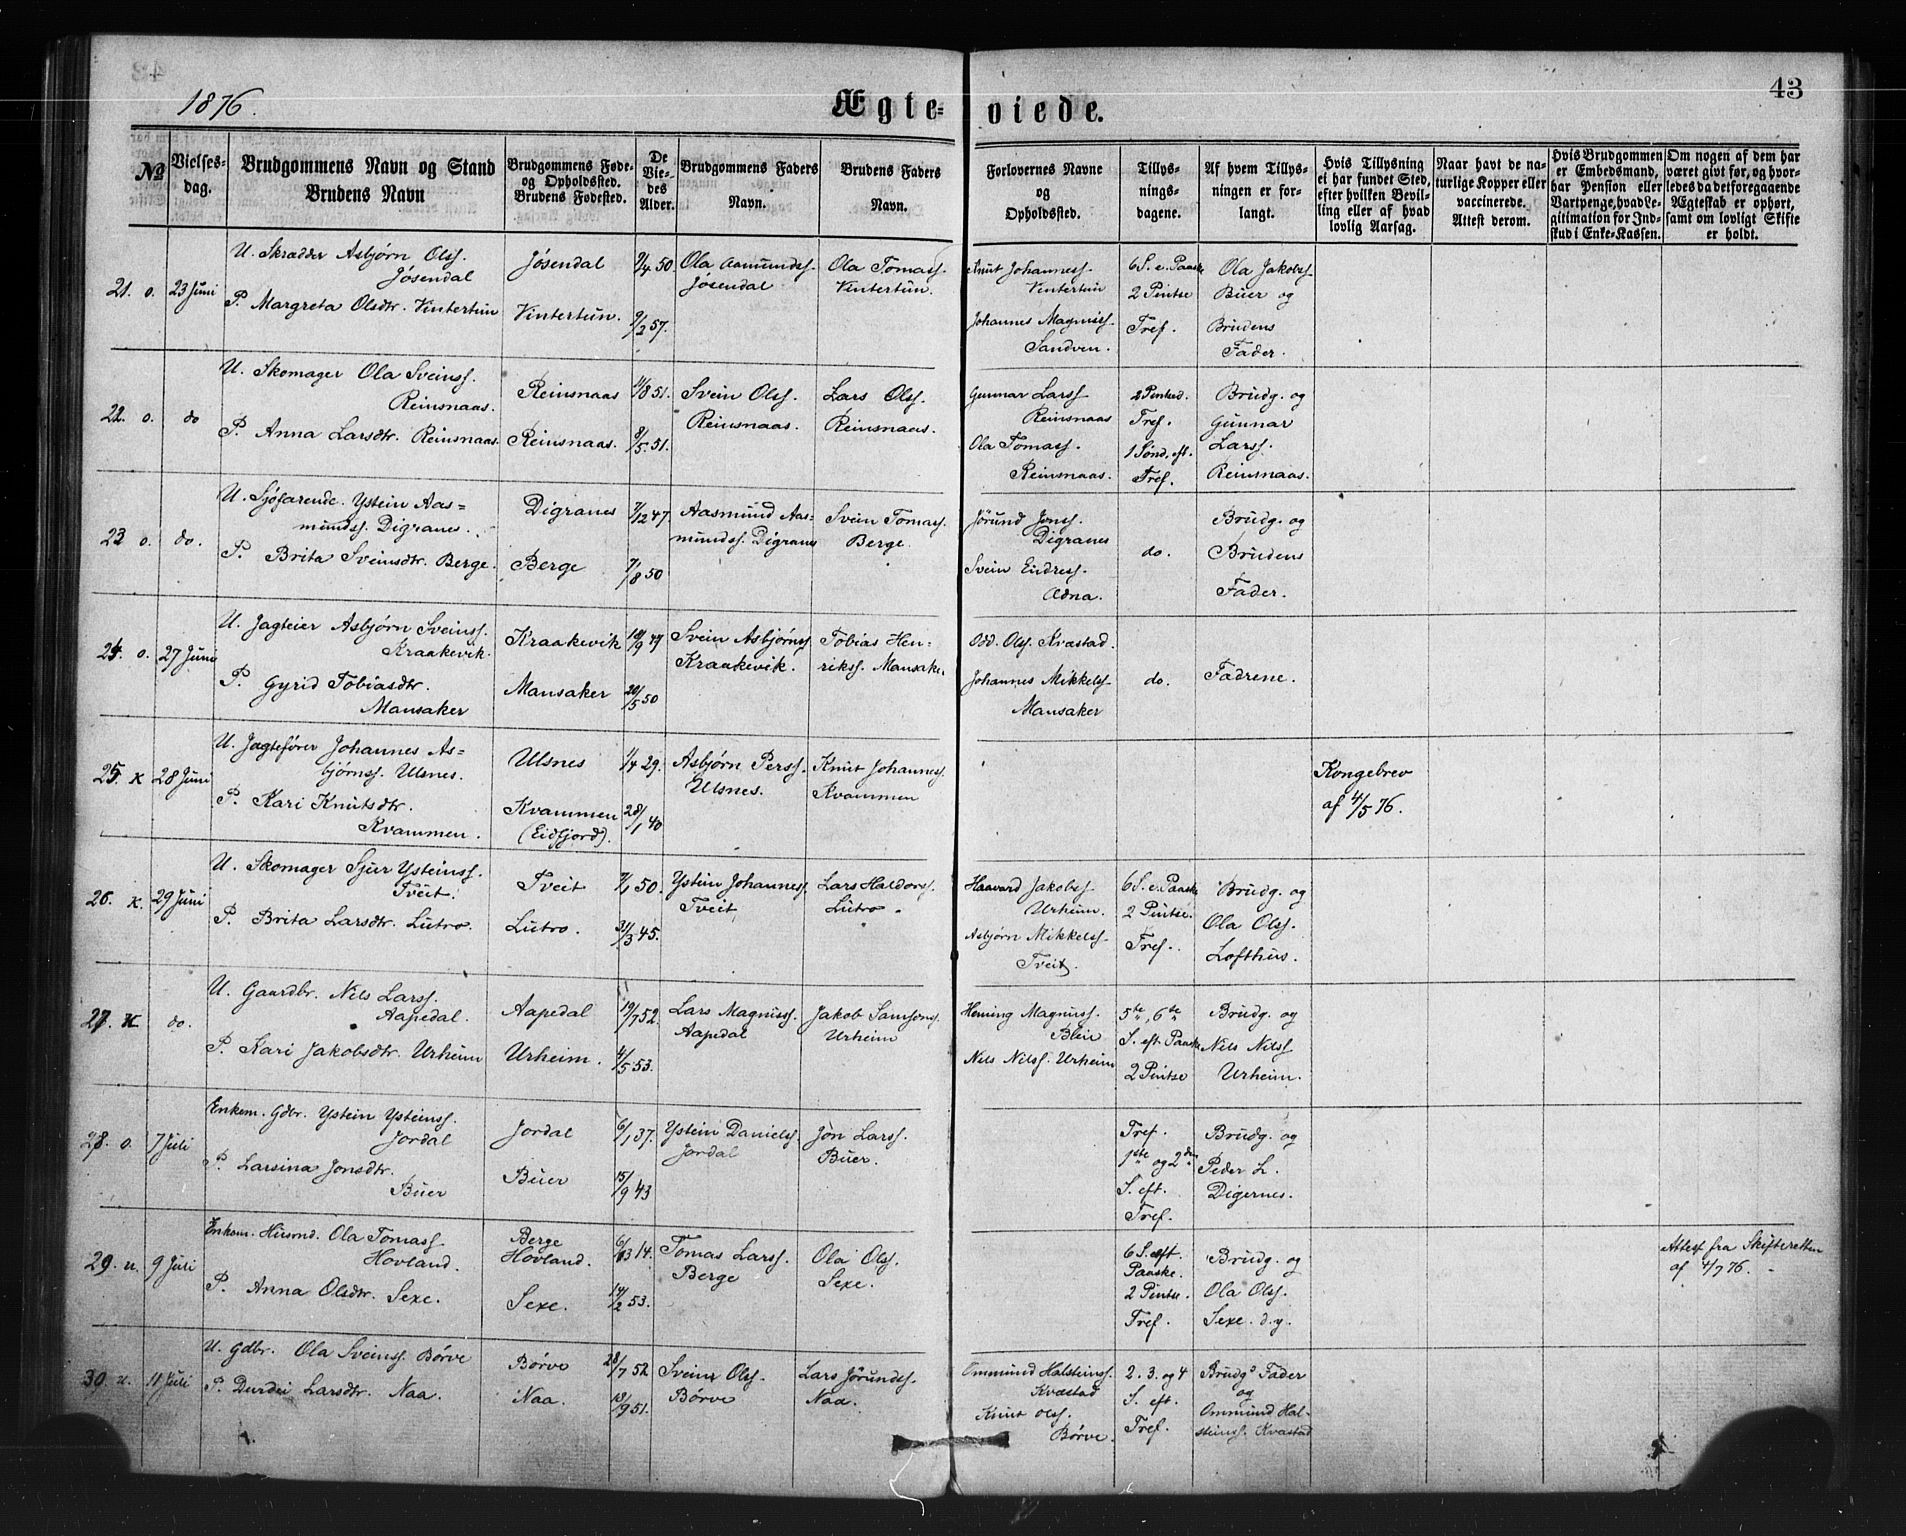 1876.
Ægte=viede.
43
№
Vielses-dag.
Brudgommens Navn og Stand
Brudens Navn
Brudgommens Føde- og Opholdssted.
Brudens Fødested.
De Vie-des Alder.
Brudgommens Faders Navn.
Brudens Faders Navn.
Forlovernes Navne og Opholdssted.
Tillys-nings-dagene.
Af hvem Tillys-ningen er for-langt.
Hvis Tillysning ei har fundet Sted, efter hvilken Bevil-ling eller af hvad lovlig Aarsag.
Naar havt de na-turlige Kopper eller vaccinerede. Attest derom.
Hvis Brudgommen er Embedsmand, har Pension eller Vartpenge, hvad Le-gitimation for Ind-skud i Enke-Kassen.
Om nogen af dem har været givt før, og hvor-ledes da det foregaaende Ægteskab er ophørt, samt om lovligt Skifte er holdt.
21. o. 23 Juni
U. Skrædder Asbjørn Olss.
Jøsendal
P. Margreta Olsdtr. Vintertun
Jøsendal
Vintertun.
9/4 50.
9/2 57.
Ola Aamunds.
Jøsendal
Ola Tomass.
Vintertun.
Knut Johanness.
Vintertun
Johannes Magniss.
Sandven.
6 S. e. Paaske
2 Pintse
Tref.
Ola Jakobs.
Buer og
Brudens
Fader.
22. o. do
U. Skomager Ola Sveinss.
Reinsnaas.
P. Anna Larsdtr. Reinsnaas.
Reinsnaas
Reinsnaas.
11/8 51.
8/5 51.
Svein Olss.
Reinsnaas.
Lars Olss.
Reinsnaas.
Gunnar Larss
Reinsnaas
Ola Tomass.
Reinsnaas.
2 Pinsed.
Tref.
1 Sönd. eft.
Tref.
Brudg. og
Gunnar
Larss.
Reinsnaas.
23 o. do.
U. Sjøfarende. Ystein Aas=
munds. Digranes.
P. Brita Sveinsdtr. Berge.
Digranes
Berge
7/12 47.
7/8 50
Aasmund Aas-
munds. Digranes
Svein Tomass.
Berge.
Jørund Jonss.
Digranes
Svein Eidress.
Ædna.
do.
Brudg. og
Brudens
Fader.
24. o. 27 Juni
U. Jagteier Asbjørn Sveinss.
Kraakevik.
P. Gyrid Tobiasdtr.
Mansaker
Kraakevik
Mansaker
20/5 50
Svein Asbjørnss
Kraakevik.
Tobias Hen-
rikss. Mansaker
Odd. Olss. Kvæstad.
Johannes Mikkelss.
Mansaker
do.
Fadrene.
25. K 28 Juni
U. Jagtefører Johannes As=
bjørnss. Ulsnes.
P. Kari Knutsdtr.
Kvammen.
Ulsnes
Kvammen
(Eidfjord).
1/4 29.
28/1 40
Asbjørn Perss.
Ulsnes.
Knut Johanness.
Kvammen
Kongebrev
af 4/5 76.
26. K. 29 Juni
U. Skomager Sjur Ysteinss.
Tveit.
P. Brita Larsdtr. Lutro.
Tveit
Lutro.
7/1 50.
31/3 45.
Ystein Johanness.
Tveit
Lars Haldors.
Lutro.
Haavard Jakobs.
Urheim.
Asbjørn Mikkelss.
Tveit.
6 S. e. Paaske
2 Pintse.
Tref.
Brudg. og
Ola Olss.
Lofthus.
27. K do.
U. Gaardbr. Nils Larss.
Aapedal.
P. Kari Jakobsdtr. Urheim
Aapedal
Urheim.
19/7 52.
4/5 53.
Lars Magnuss.
Aapedal
Jakob Samsons.
Urheim
Heming Magnuss.
Bleie
Nils Nilss. Urheim
5te, 6te
S. eft. Paaske
2 Pintse
Brudg. og
Nils Nilss
Urheim.
28. o. 7 Juli
Enkem. Gdbr. Ystein Ysteinss.
Jordal
P. Larsina Jonsdtr.
Buer
Jordal
Buer
6/1 37.
15/9 43
Ystein Daniels.
Jordal
Jon Larss.
Buer.
Tref.
1ste og 2den
S. eft.
Tref.
Brudg. og
Peder L.
Digernes.
29. u. 9 Juli
Enkem. Husmd. Ola Tomass
Hovland.
P. Anna Olsdtr. Sexe.
Berge
Hovland.
Sexe.
14/2 53.
Tomas Larss.
Berge
Ola Olss.
Sexe.
6 S. eft.
Paaske.
2 Pintse.
Tref.
Brudg. og
Ola Olss.
Sexe. d.y.
Attest fra Skifteretten
af 4/7 76.
30. u. 11 Juli
U. Gdbr. Ola Sveinss. Børve
P. Durdei Larsdtr. Naa.
Børve
Naa.
28/7 52.
18/9 51.
Svein Olss.
Børve
Lars Jørundss.
Naa.
Ommund Halsteinss.
Kvæstad
Knut Olss.
Børve.
2. 3. og 4
S. eft.
Tref.
Brudgs Fader
og
Ommund Hal-
steinss. Kvæstad